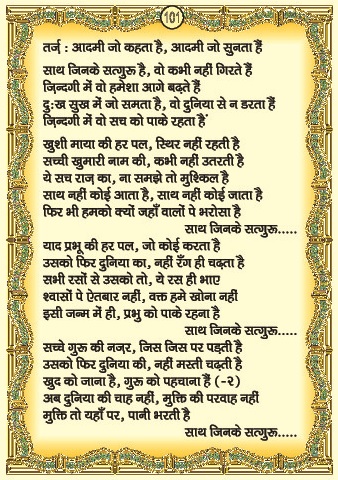 101
तर्ज़ : आदमी जो कहता है, आदमी जो सुनता हैं
साथ जिनके सत्गुरू है, वो कभी नहीं गिरते हैं
ज़िन्दगी में वो हमेशा आगे बढ़ते हैं
दुःख सुख में जो समता है, वो दुनिया से न डरता हैं
ज़िन्दगी में वो सच को पाके रहता है
खुशी माया की हर पल, स्थिर नहीं रहती है
सच्ची खुमारी नाम की, कभी नहीं उतरती है
ये सच राज़ का, ना समझे तो मुश्किल है
साथ नहीं कोई आता है, साथ नहीं कोई जाता है
फिर भी हमको क्यों जहाँ वालों पे भरोसा है
साथ जिनके सत्गुरू.....
याद प्रभू की हर पल, जो कोई करता है
उसको फिर दुनिया का, नहीं रँग ही चढ़ता है
सभी रसों से उसको तो, ये रस ही भाए
श्वासों पे ऐतबार नहीं, वक्त हमे खोना नहीं
इसी जन्म में ही, प्रभु को पाके रहना है
साथ जिनके सत्गुरू.....
सच्चे गुरू की नज़र, जिस जिस पर पड़ती है
उसको फिर दुनिया की, नहीं मस्ती चढ़ती है
खुद को जाना है, गुरू को पहचाना हैं (-२)
अब दुनिया की चाह नहीं, मुक्ति की परवाह नहीं
मुक्ति तो यहाँ पर, पानी भरती है
साथ जिनके सत्गुरू.....